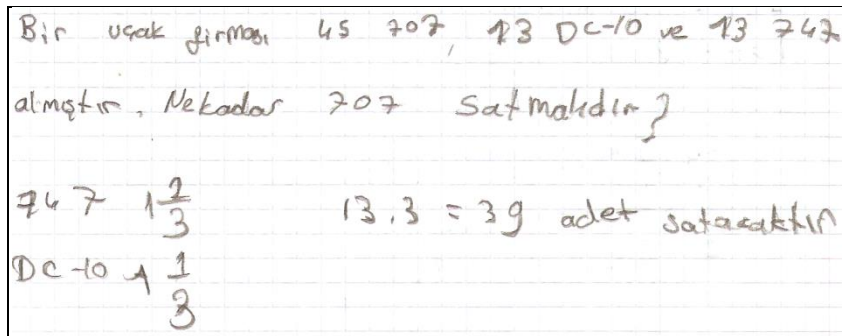 Bir uçak firması 45 707, 13 DC-10 ve 13 747
almıştır. Nekadar 707 satmalıdır?
747 1 2/3 13.3 = 39 adet satacaktır
DC-10 1 1/3